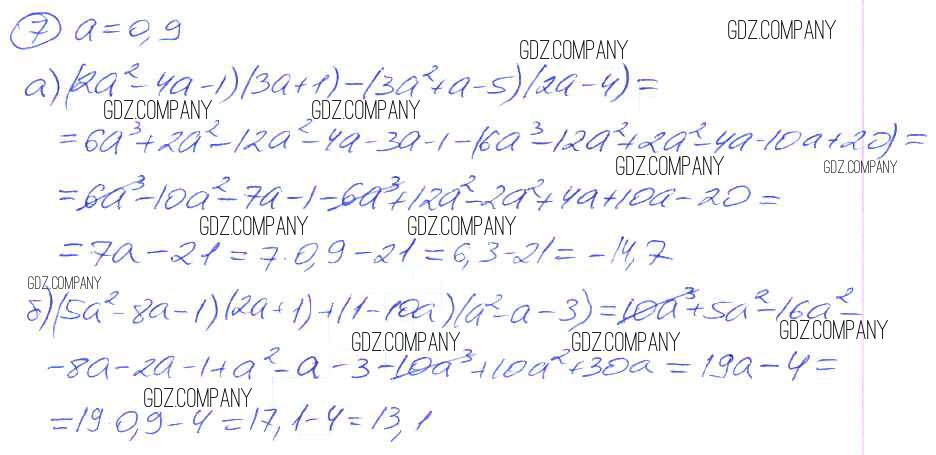 7 a=0,9
GDZ.COMPANY
GDZ.COMPANY
а) (2a²-4a-1)(3a+1)-(3a²+a-5)(2a-4)=
GDZ.COMPANY GDZ.COMPANY
=6a³+2a²-12a²-4a-3a-1-(6a³-12a²+2a²-4a-10a+20)=
GDZ.COMPANY GDZ.COMPANY
=6a³-10a²-7a-1-6a³+12a²-2a²+4a+10a-20=
GDZ.COMPANY GDZ.COMPANY
=7a-21=7·0,9-21=6,3-21=-14,7
GDZ.COMPANY
б) (5a²-8a-1)(2a+1)+(1-10a)(a²-a-3)=10a³+5a²-16a²-
GDZ.COMPANY GDZ.COMPANY GDZ.COMPANY
-8a-2a-1+a²-a-3-10a³+10a²+30a=19a-4=
GDZ.COMPANY
=19·0,9-4=17,1-4=13,1